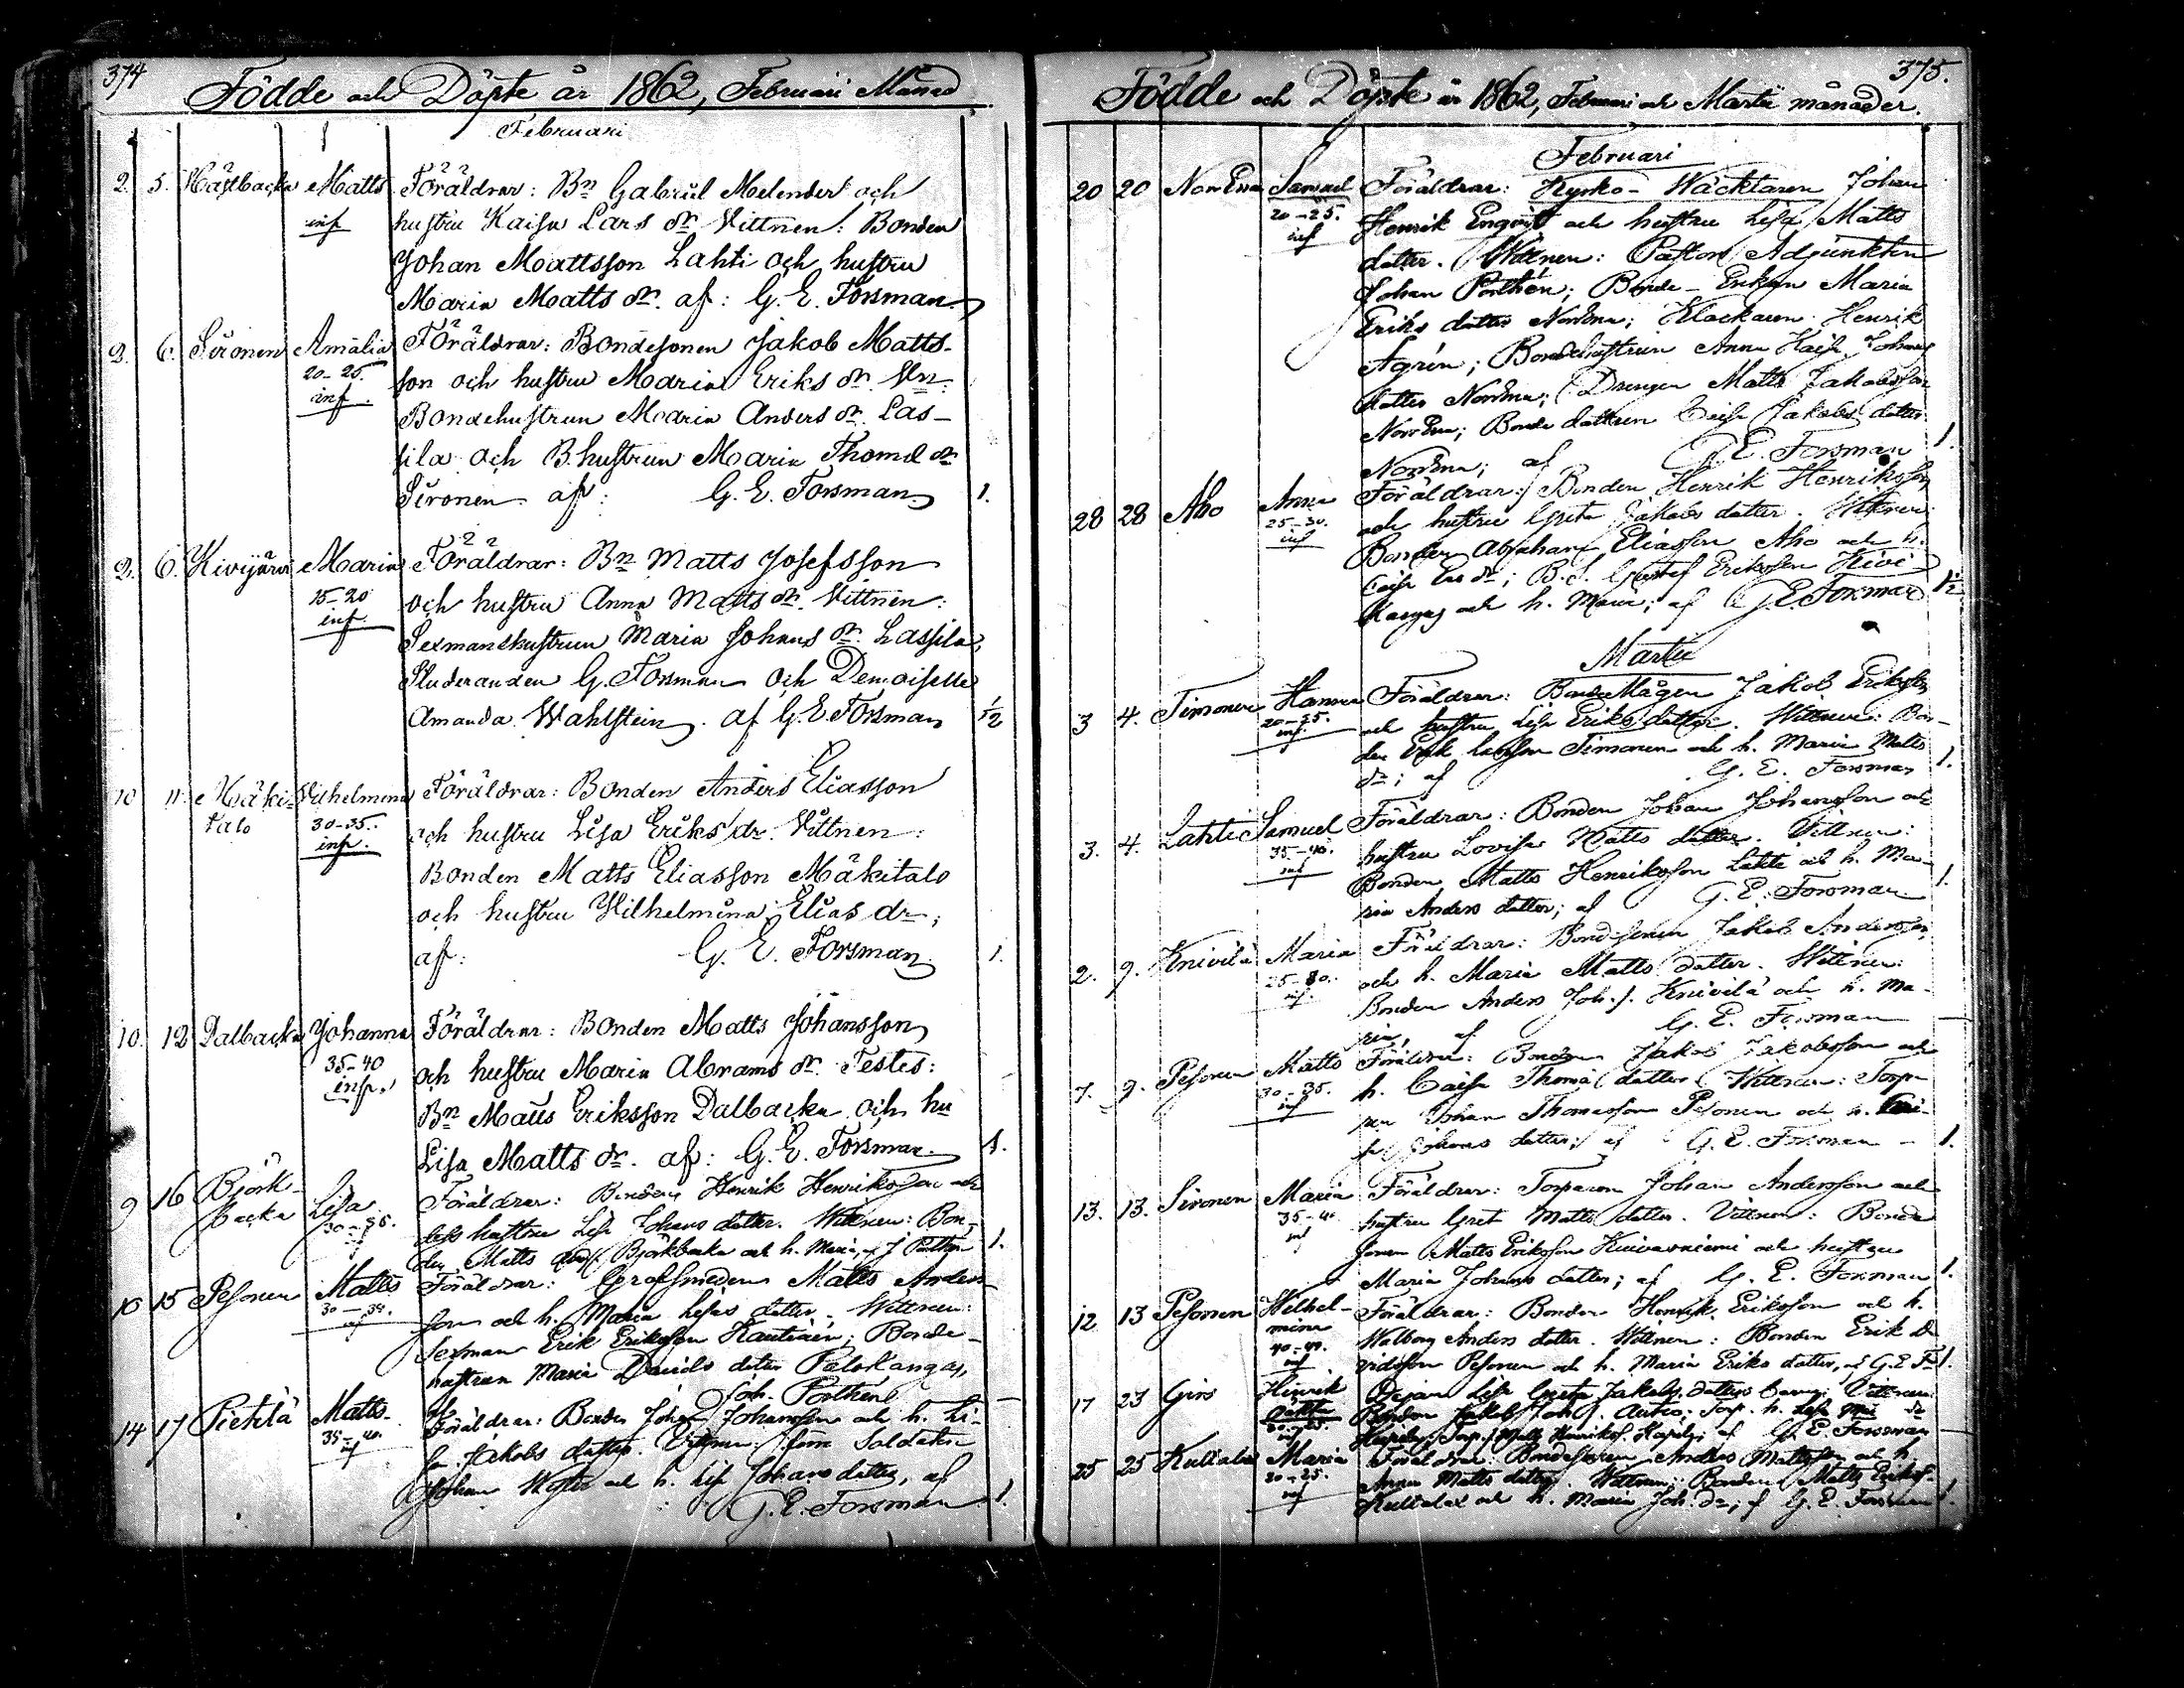 374
Födde och Döpte år 1862, Februari Månad
Februari
2. 5. Hästbacka Matts Föräldrar: Bn Gabriel Melender och
inf hustru Kaisa Lars dr. Vittnen: Bonden
Johan Mattsson Lahti och hustru
Maria Matts dr. af: G. E. Forsman
2. 6. Sironen Amalia Föräldrar: Bondesonen Jakob Matts-
20-25. son och hustru Maria Eriks dr. Vn:
inf. Bondehustrun Maria Anders dr. Las-
sila och B.hustrun Maria Thomæ dr
Sironen. af: G. E. Forsman 1.
2. 6. Kivijärvi Maria Föräldrar: Bn Matts Josefsson
15-20 och hustru Anna Matts dr. Vittnen:
inf. Sexmanshustrun Maria Johans dr. Lassila,
Studeranden G. Forsman och Demoiselle
Amanda Wahlstein. af G. E. Forsman 1/2
10 11. Mäki- Vilhelmina Föräldrar: Bonden Anders Eliasson
talo 30-35. och hustru Lisa Eriks dr. Vittnen:
inf. Bonden Matts Eliasson Mäkitalo
och hustru Vilhelmina Elias dr;
af: G. E. Forsman 1.
10. 12 Dalbacka Johanna Föräldrar: Bonden Matts Johansson
35-40 och hustru Maria Abrams dr. Testes:
inf. Bn Matts Eriksson Dalbacka och hu
Lisa Matts dr. af: G. E. Forsman 1.
9 16 Björk- Lisa Föräldrar: Bonden Henrik Henriksson och
backa 30-35. dess hustru Lisa Johans dotter. Wittnen: Bon-
den Matts Björkbacka och h. Maria, af J Porthén 1.
10 15 Pesonen Matts Föräldrar: Grofsmeden Matts Anders-
30-35. son och h. Maria Lisas dotter. Wittnen:
inf Sexman Erik Eriksson Kautiain; Bonde-
hustrun Maria Davids dotter Palokangas,
af Joh. Porthén
14 17 Pietilä Matts Föräldrar: Bonden Johan Johansson och h. Li-
35-40. sa Jakobs dotter. Vittnen: förre Soldaten
inf Johan och h. Lisa Johans dotter, af
G. E. Forsman 1.
375.
Födde och Döpte år 1862, Februari och Martii månader.
Februari
20 20 Samuel Föräldrar: Kyrko-Wäcktaren Johan
20-25. Henrik Enqvist och hustru Lisa Matts
inf dotter. Wittnen: Pastors Adjunkten
Johan Porthén; Bonde-Enkan Maria
Eriks dotter; Klockaren Henrik
Ågrén; Bondehustrun Anna Kaisa Johans
dotter; Drengen Matts Jakobsson
; Bonde dottren Caisa Jakobs dotter
; af G. E. Forsman 1.
28 28 Aho Anna Föräldrar: Bonden Henrik Henriksson
25-30. och hustru Greta Jakobs dotter. Wittnen:
inf Bonden Abraham Eliasson Aho och h.
Caisa dr; B.S. Gustaf Eriksson Kivi
Kangas och h. Maria; af G. E. Forsman 1/2
Martii
3 4. Timonen Hanna Föräldrar: BondeMågen Jakob Eriksson
20-25. och hustru Lisa Eriks dotter. Wittnen: Bon-
inf. den Erik Timonen och h. Maria Matts
dr; af G. E. Forsman 1.
3. 4. Lahti Samuel Föräldrar: Bonden Johan Johansson och
35-40. hustru Lovisa Matts dotter. Vittnen:
inf Bonden Matts Henriksson Lahti och h. Ma-
ria Anders dotter; af G. E. Forsman 1.
2. 9. Knivilä Maria Föräldrar: Bondesonen Jakob Andersson,
25-30. och h. Maria Matts dotter. Wittnen:
inf. Bonden Anders Joh.s. Knivilä och h. Ma-
ria, af G. E. Forsman
7. 9. Pesonen Matts Föräldrar: Bonden Jakob Jakobsson och
30-35. h. Caisa Thomæ dotter. Wittnen: Torpa-
inf ren Johan Thomasson Pesonen och h. Cai-
sa Johans dotter; af G. E. Forsman 1.
13. 13. Sironen Maria Föräldrar: Torparen Johan Andersson och
35-40. hustru Greta Matts dotter. Vittnen: Bonde
inf sonen Matts Eriksson Knivasniemi och hustru
Maria Johans dotter; af G. E. Forsman 1.
12 13 Pesonen Wilhel- Föräldrar: Bonden Henrik Eriksson och h.
mina Walborg Anders dotter. Wittnen: Bonden Erik Da
40-45. vidsson Pesonen och h. Maria Eriks dotter, af G. E. Fn 1.
inf
17 23 Girs Henrik Pigan Lisa Greta Jakobs dotters barn. Vittnen:
oäkta Bonden Jakob Joh.s. Torp. h. Lisa
20-25. ; Matts Henriks. ; af G. E. Forsman
25 25 Kultalax Maria Föräldrar: Bondesonen Anders Mattsson och h.
20-25. Anna Matts dotter. Wittnen: Bonden Matts Erikss.
inf Kultalax och h. Maria Joh. dr; af G. E. Forsman 1.